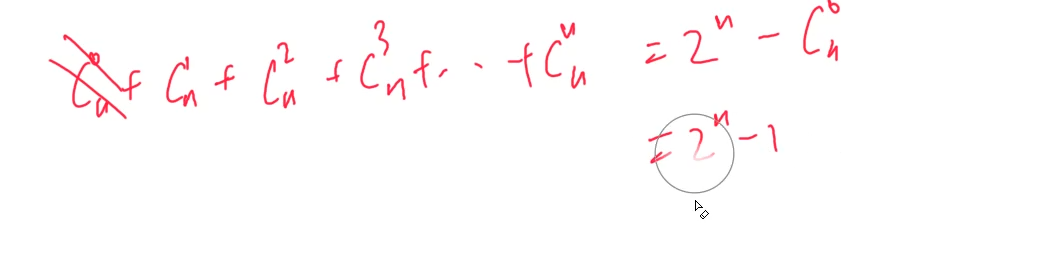 C_n^0 + C_n^1 + C_n^2 + C_n^3 + . . . + C_n^n = 2^n - C_n^0
= 2^n - 1